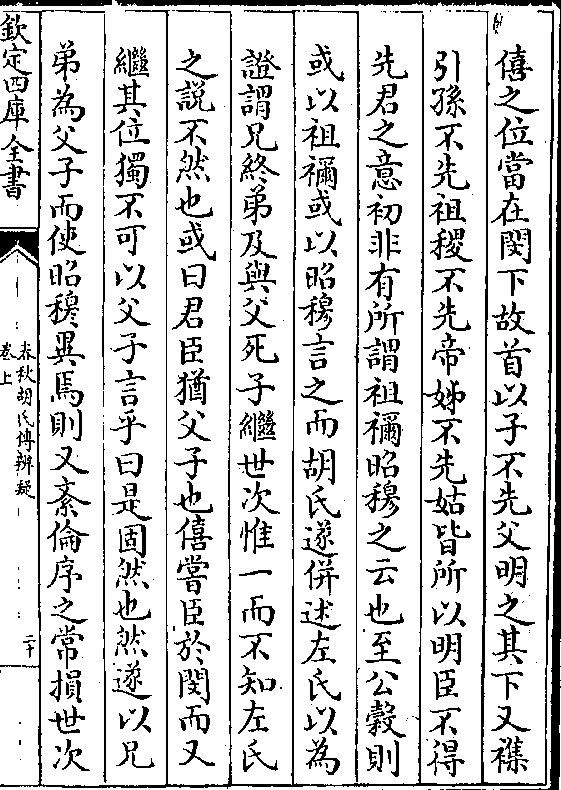 僖之位當在閔下故首以子不先父明之其下又襍
引孫不先祖稷不先帝姊不先姑皆所以明臣不得
先君之意初非有所謂祖禰昭穆之云也至公穀則
或以祖禰或以昭穆言之而胡氏遂併述左氏以為
證謂兄終弟及與父死子繼世次惟一而不知左氏
之説不然也或曰君臣猶父子也僖嘗臣於閔而又
繼其位獨不可以父子言乎曰是固然也然遂以兄
弟為父子而使昭穆異焉則又紊倫序之常損世次
欽定四庫全書
春秋胡氏傳辨疑
卷上
二十